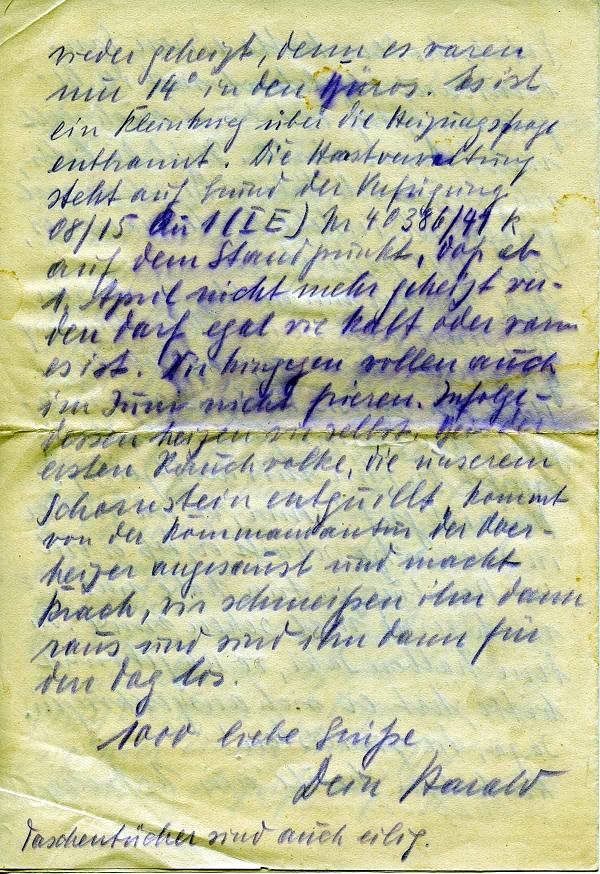 wieder geheizt, denn es waren
nur 14° in den Büros. Es ist
ein Kleinkrieg über die Heizungsfrage
entbrannt. Die Horstverwaltung
steht auf Grund der Verfügung
08/15 Au 1 (IE) Nr 40386/41 k
auf dem Standpunkt, daß ab
1. April nicht mehr geheizt wer-
den darf egal wie kalt oder warm
es ist. Wir hingegen wollen auch
im Juni nicht frieren. Infolge-
dessen heizen wir selbst. Bei der
ersten Rauchwolke, die unserem
Schornstein entquillt, kommt
von der Kommandantur der Ober-
heizer angesaust und macht
Krach, wir schmeißen ihn dann
raus und sind ihn dann für
den Dag los.
1000 liebe Grüße
Dein Harald
Taschentücher sind auch eilig.